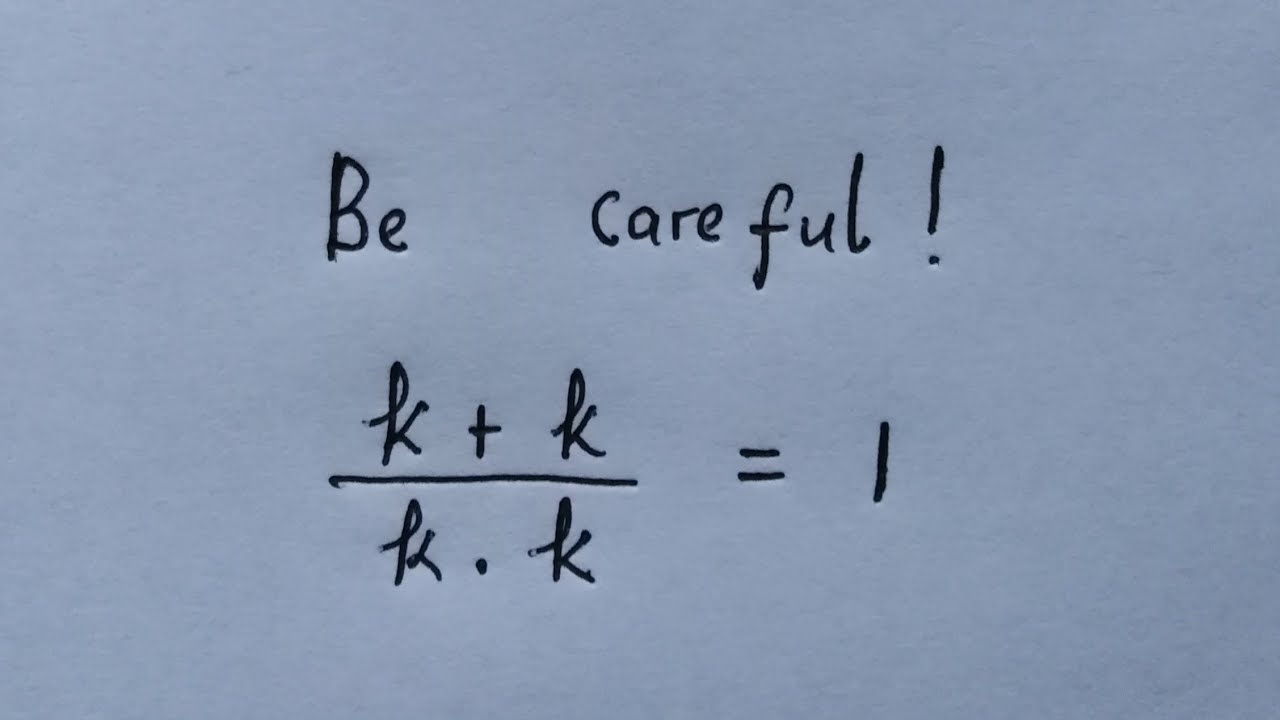 Be careful!
k + k
k . k
= 1